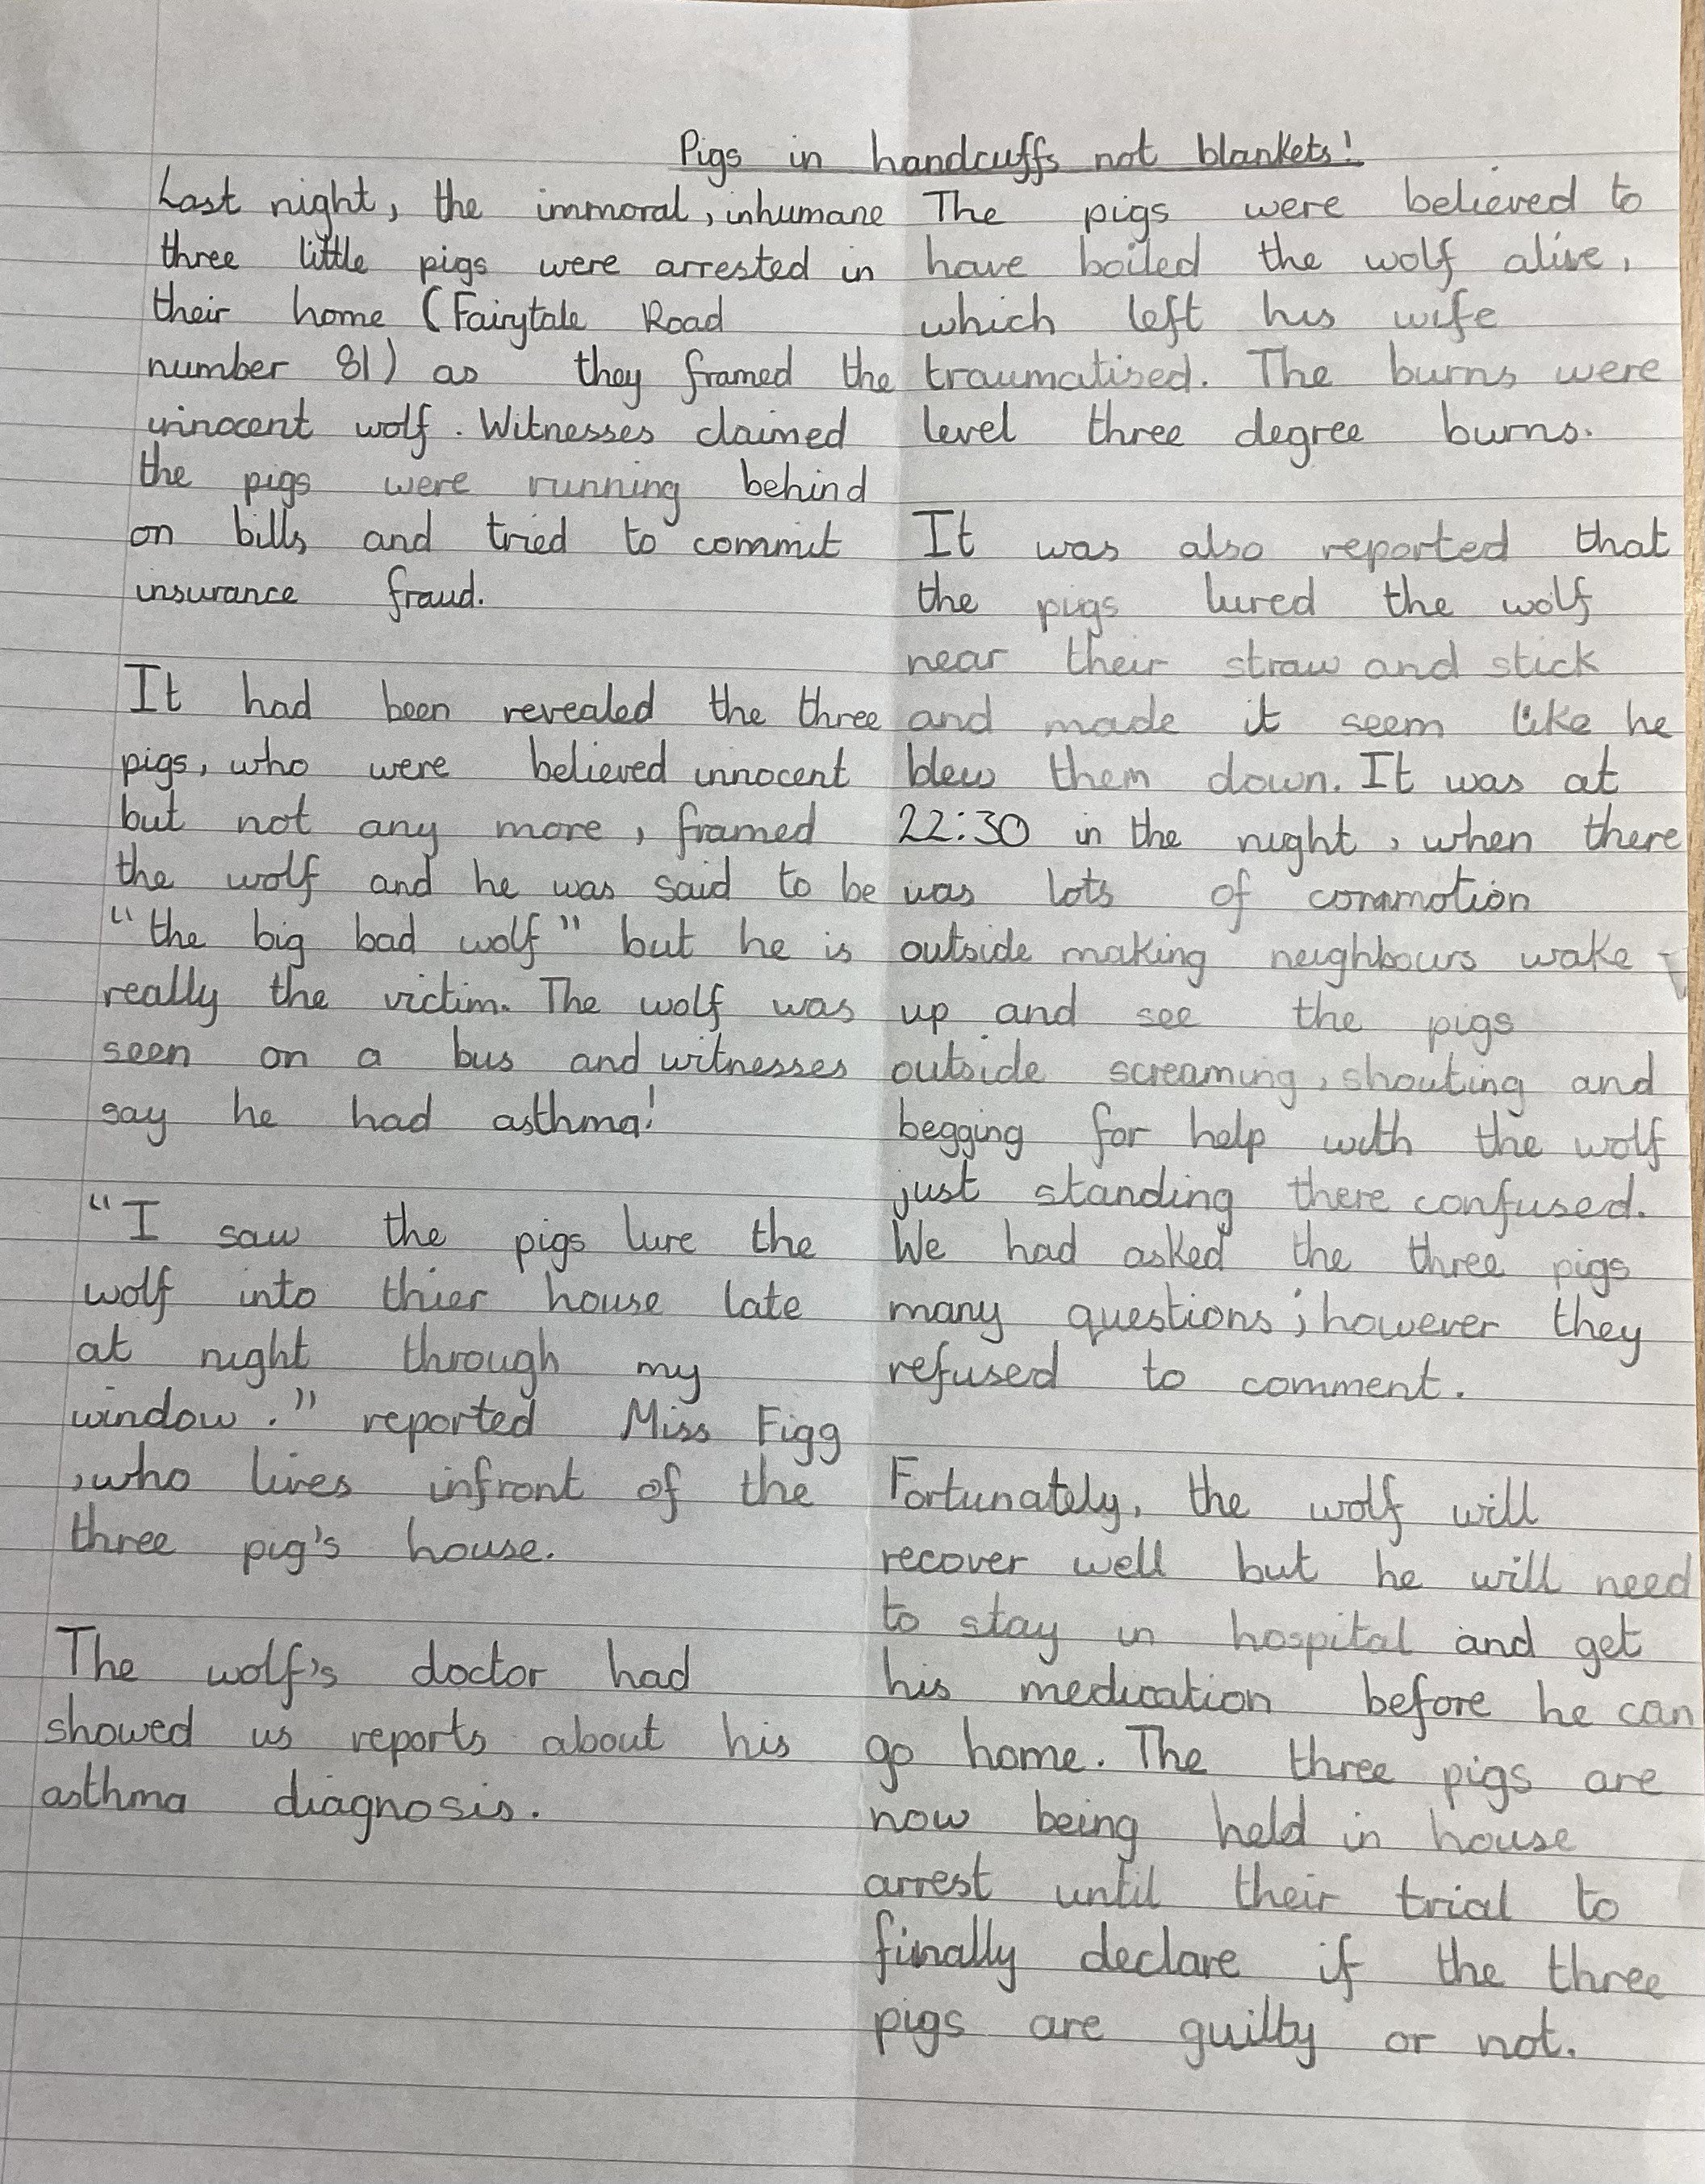 Pigs in handcuffs not blankets!
Last night, the immoral, inhumane
three little pigs were arrested in
their home (Fairytale Road
number 81) as they framed the
innocent wolf. Witnesses claimed
the pigs were running behind
on bills and tried to commit
insurance fraud.
It had been revealed the three
pigs, who were believed innocent
but not any more, framed
the wolf and he was said to be
"the big bad wolf" but he is
really the victim. The wolf was
seen on a bus and witnesses
say he had asthma!
"I saw the pigs lure the
wolf into thier house late
at night through my
window." reported Miss Figg
,who lives infront of the
three pig's house.
The wolf's doctor had
showed us reports about his
asthma diagnosis.
The pigs were believed to
have boiled the wolf alive,
which left his wife
traumatised. The burns were
level three degree burns.
It was also reported that
the pigs lured the wolf
near their straw and stick
and made it seem like he
blew them down. It was at
22:30 in the night, when there
was lots of commotion
outside making neighbours wake
up and see the pigs
outside screaming, shouting and
begging for help with the wolf
just standing there confused.
We had asked the three pigs
many questions; however they
refused to comment.
Fortunately, the wolf will
recover well but he will need
to stay in hospital and get
his medication before he can
go home. The three pigs are
now being held in house
arrest until their trial to
finally declare if the three
pigs are guilty or not.